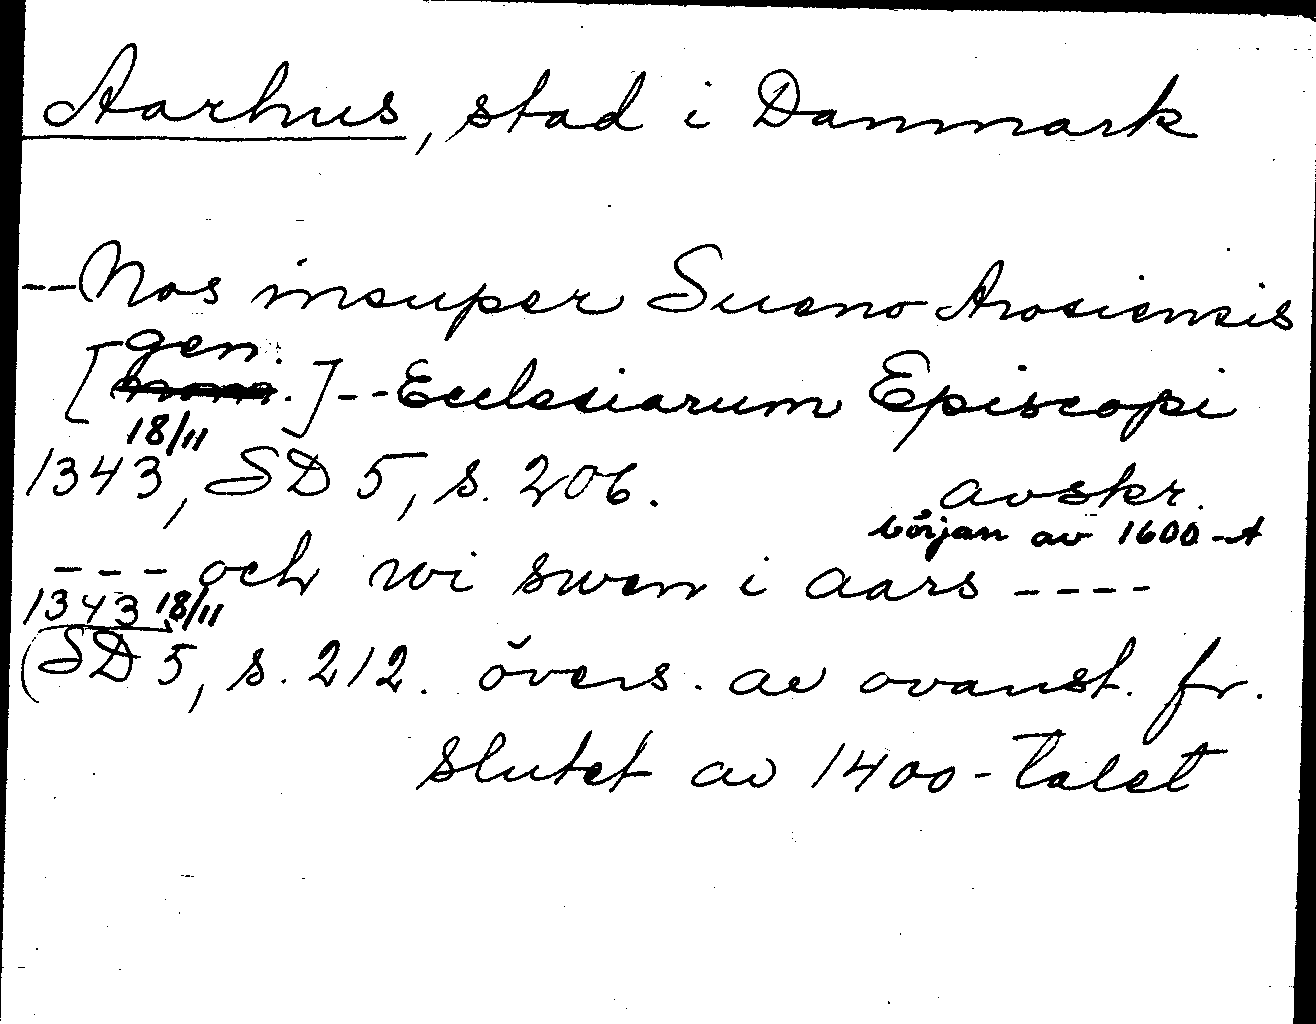 Aarhus, stad i Danmark
-- Nos insuper Sueno Arosiensis
gen.
[nom.] -- Ecclesiarum Episcopi
18/11
1343, SD 5, s. 206. avskr.
början av 1600-t
--- och wi swen i aars ----
1343 18/11
(SD 5, s. 212. övers. av ovanst. fr.
slutet av 1400-talet